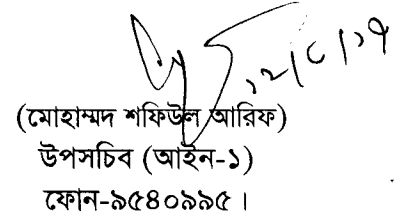 (মোহাম্মদ শফিউল আরিফ)
উপসচিব (আইন-১)
ফোন-৯৫৪০৯৯৫।